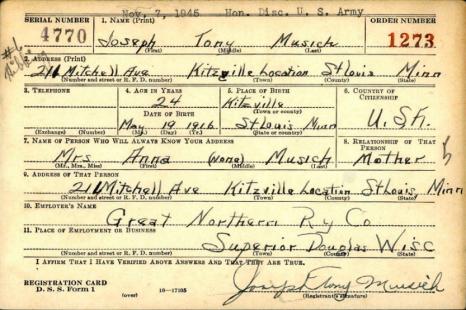 Nov. 7, 1945 Hon. Disc. U. S. Army
SERIAL NUMBER 1. NAME (Print) ORDER NUMBER
4770 Joseph Tony Musich 1273
(First) (Middle) (Last)
2. ADDRESS (Print)
211 Mitchell Ave Kitzville Location St Louis Minn
(Number and street or R. F. D. number) (Town) (County) (State)
3. TELEPHONE 4. AGE IN YEARS 5. PLACE OF BIRTH 6. COUNTRY OF CITIZENSHIP
24 Kitzville
DATE OF BIRTH (Town or county)
May 19 1916 St Louis Minn U.S.A.
(Exchange) (Number) (Mo.) (Day) (Yr.) (State or country)
7. NAME OF PERSON WHO WILL ALWAYS KNOW YOUR ADDRESS 8. RELATIONSHIP OF THAT PERSON
Mrs Anna (none) Musich Mother
(Mr., Mrs., Miss) (First) (Middle) (Last)
9. ADDRESS OF THAT PERSON
211 Mitchell Ave Kitzville Location St Louis, Minn
(Number and street or R. F. D. number) (Town) (County) (State)
10. EMPLOYER'S NAME
Great Northern Ry Co
11. PLACE OF EMPLOYMENT OR BUSINESS
Superior Douglas Wisc
(Number and street or R. F. D. number) (Town) (County) (State)
I AFFIRM THAT I HAVE VERIFIED ABOVE ANSWERS AND THAT THEY ARE TRUE.
REGISTRATION CARD
D. S. S. Form 1 (over) 16—17105 Joseph Tony Musich
(Registrant's signature)